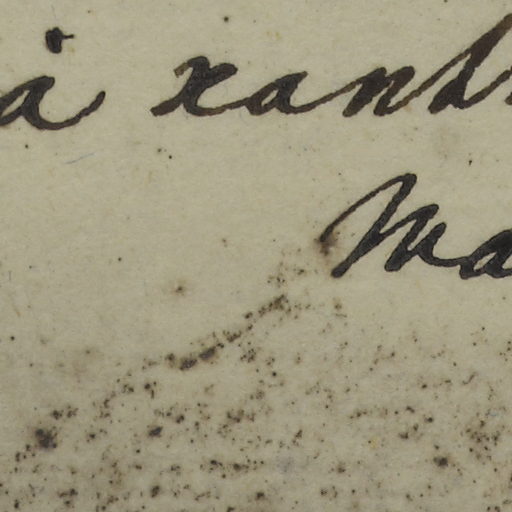 à xanth
Ma